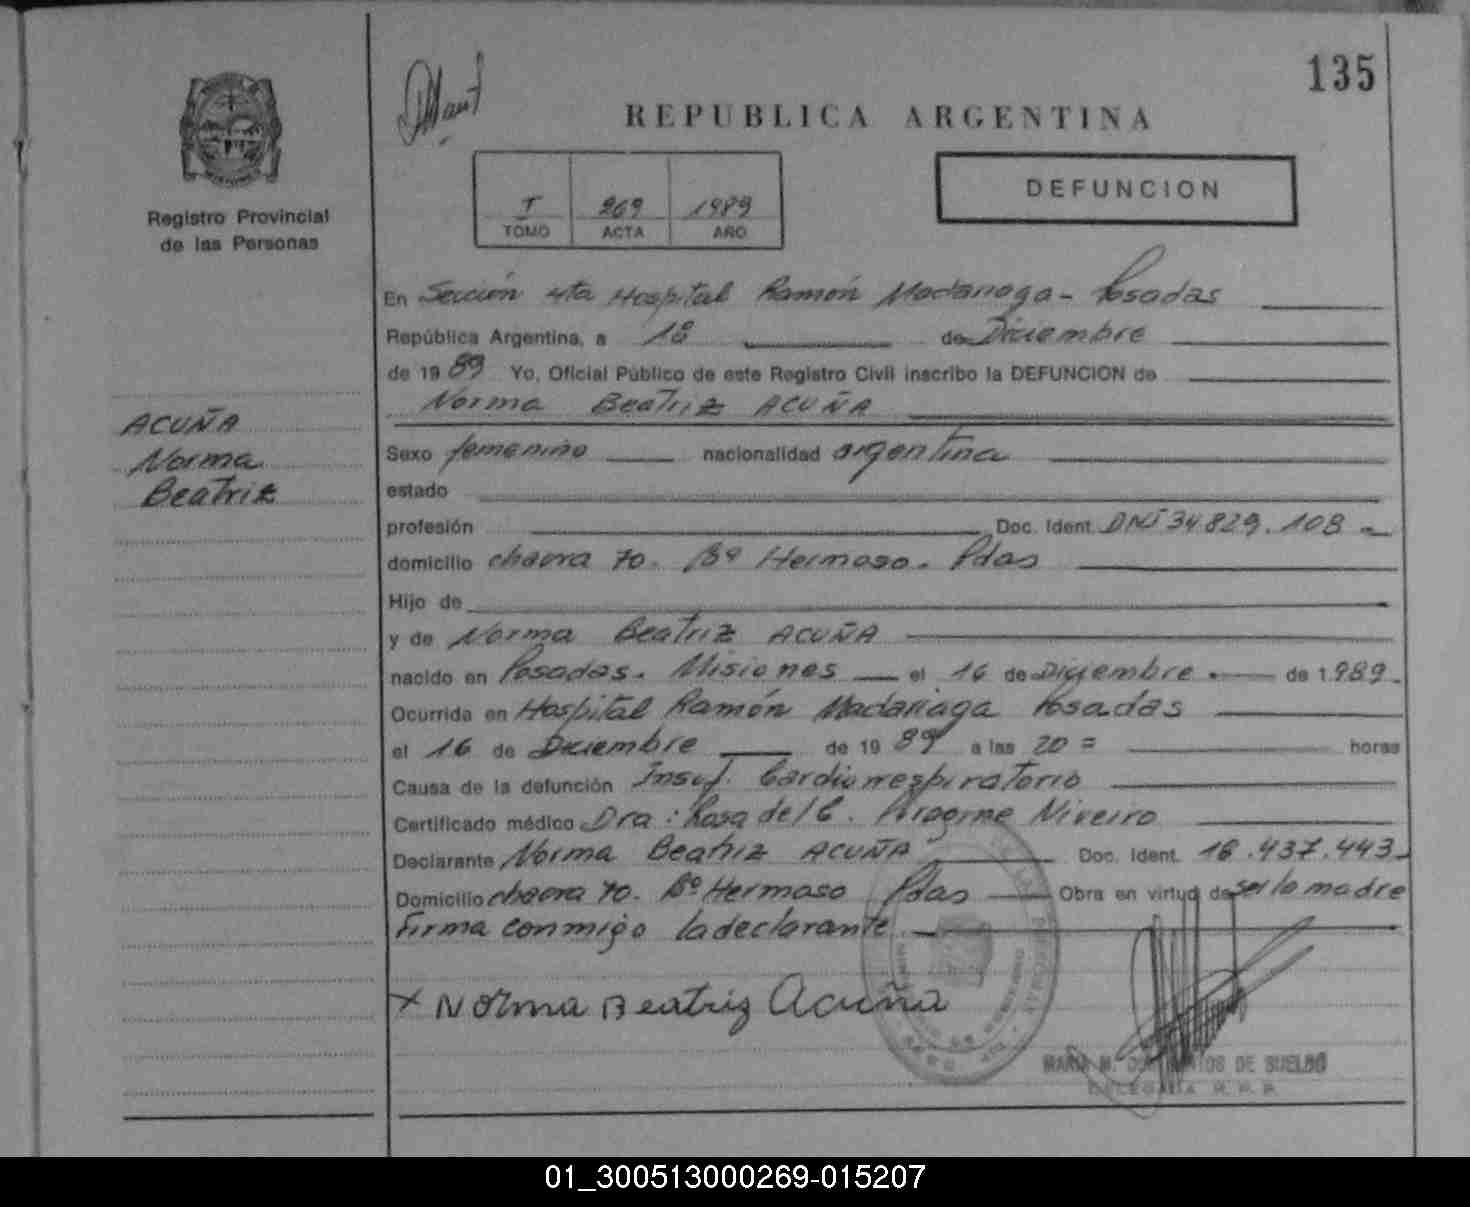 135
REPUBLICA ARGENTINA
Registro Provincial
de las Personas
I 269 1989
TOMO ACTA AÑO
DEFUNCION
En Sección 4ta Hospital Ramón Madariaga - Posadas
República Argentina, a 18 de Diciembre
de 19 89 Yo, Oficial Público de este Registro Civil inscribo la DEFUNCION de
Norma Beatriz ACUÑA
ACUÑA
Norma
Beatriz
Sexo femenino nacionalidad argentina
estado
profesión Doc. Ident. DNI 34.829.108
domicilio chacra 70. Bº Hermoso. Pdas
Hijo de
y de Norma Beatriz ACUÑA
nacido en Posadas. Misiones el 16 de Diciembre de 1989.
Ocurrida en Hospital Ramón Madariaga Posadas
el 16 de Diciembre de 19 89 a las 20 = horas
Causa de la defunción Insuf. Cardiorrespiratorio
Certificado médico Dra: Rosa del C. Niveiro
Declarante Norma Beatriz ACUÑA Doc. Ident. 16.437.443
Domicilio chacra 70. Bº Hermoso Pdas Obra en virtud de ser la madre
Firma conmigo la declarante
x Norma Beatriz Acuña
MARIA M. DE SUELDO
DELEGADA R. P. P.
01_300513000269-015207